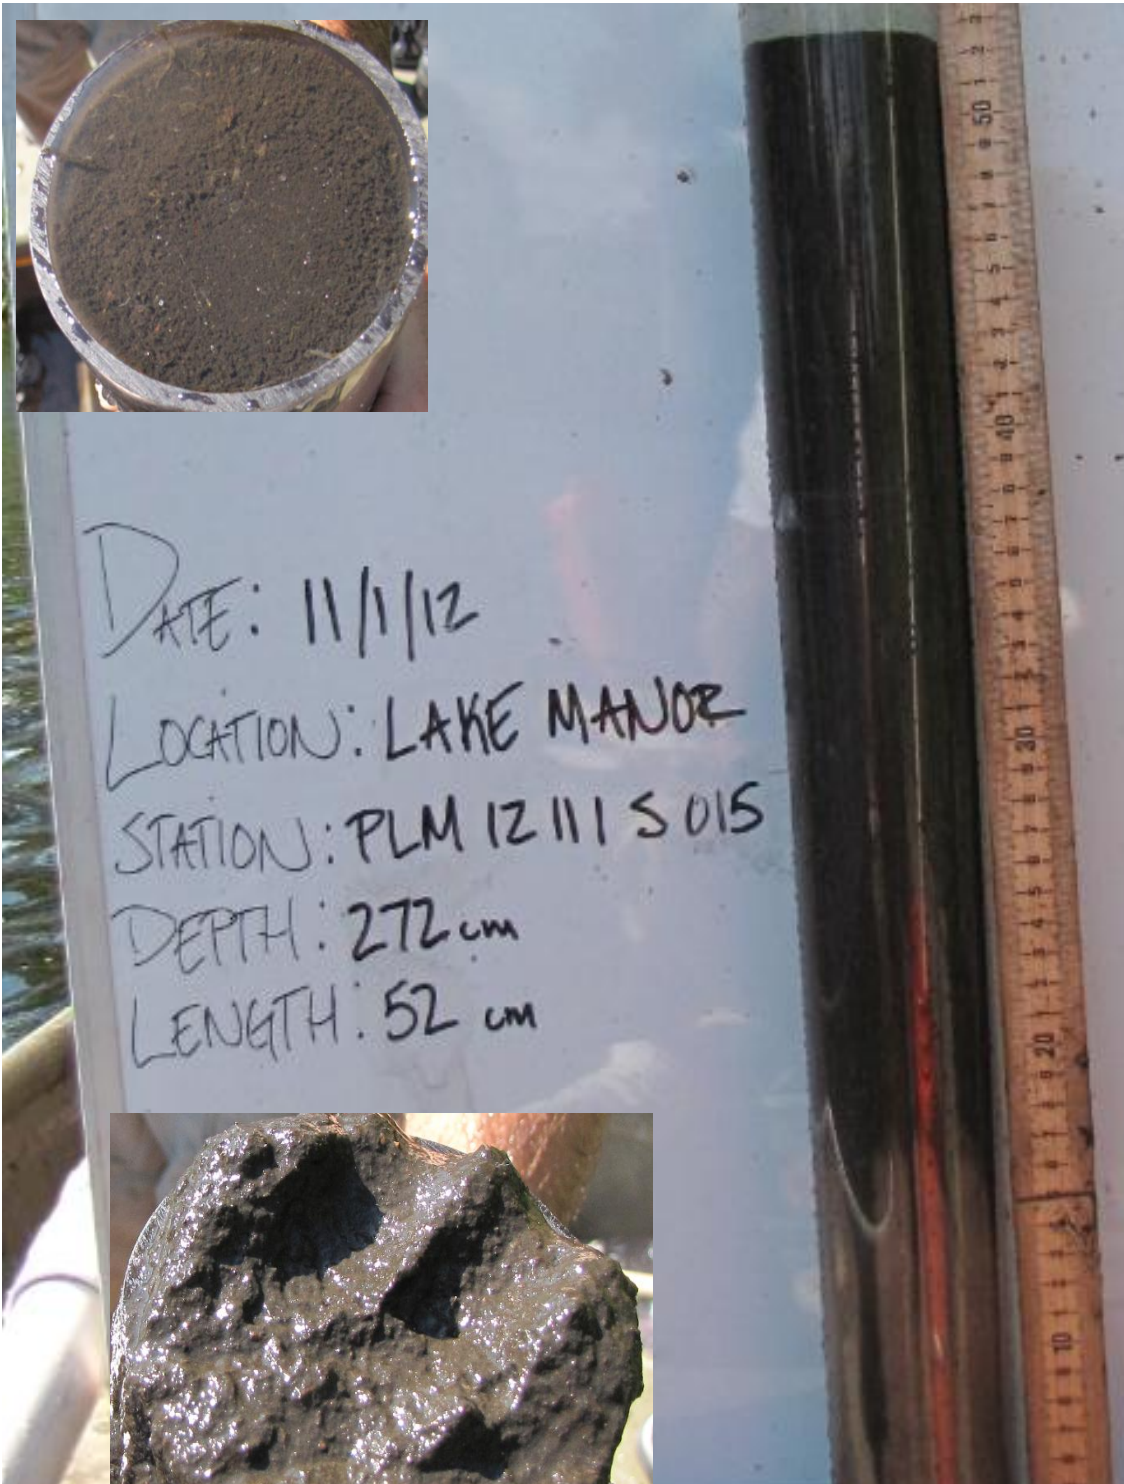 DATE: 11/1/12
LOCATION: LAKE MANOR
STATION: PLM 12 111 S 015
DEPTH: 272 cm
LENGTH: 52 cm
50
40
30
20
10